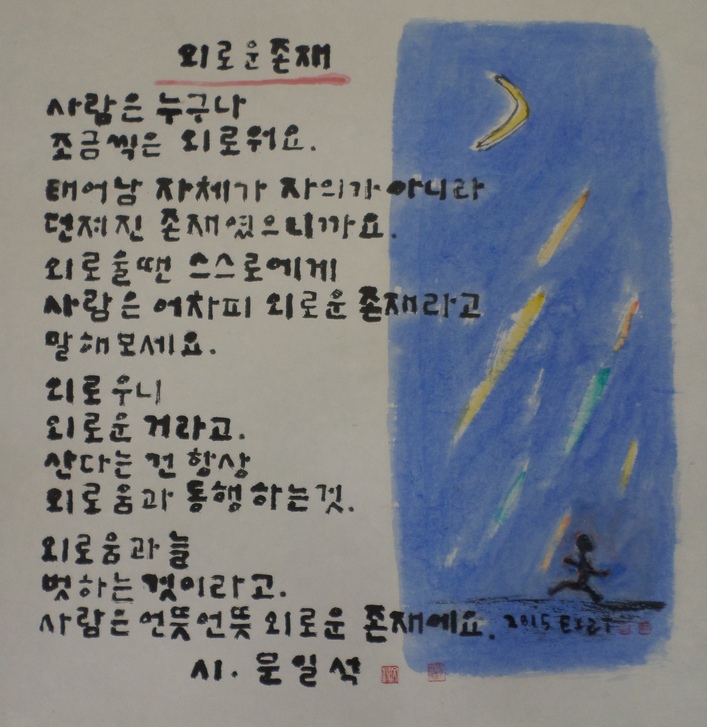 외로운존재
사람은 누구나
조금씩은 외로워요.
태어남 자체가 자의가 아니라
던져진 존재였으니까요.
외로울땐 스스로에게
사람은 어차피 외로운 존재라고
말해보세요.
외로우니
외로운 거라고.
산다는 건 항상
외로움과 동행하는것.
외로움과 늘
벗하는 것이라고.
사람은 언뜻언뜻 외로운 존재예요. 2015
시. 문일석